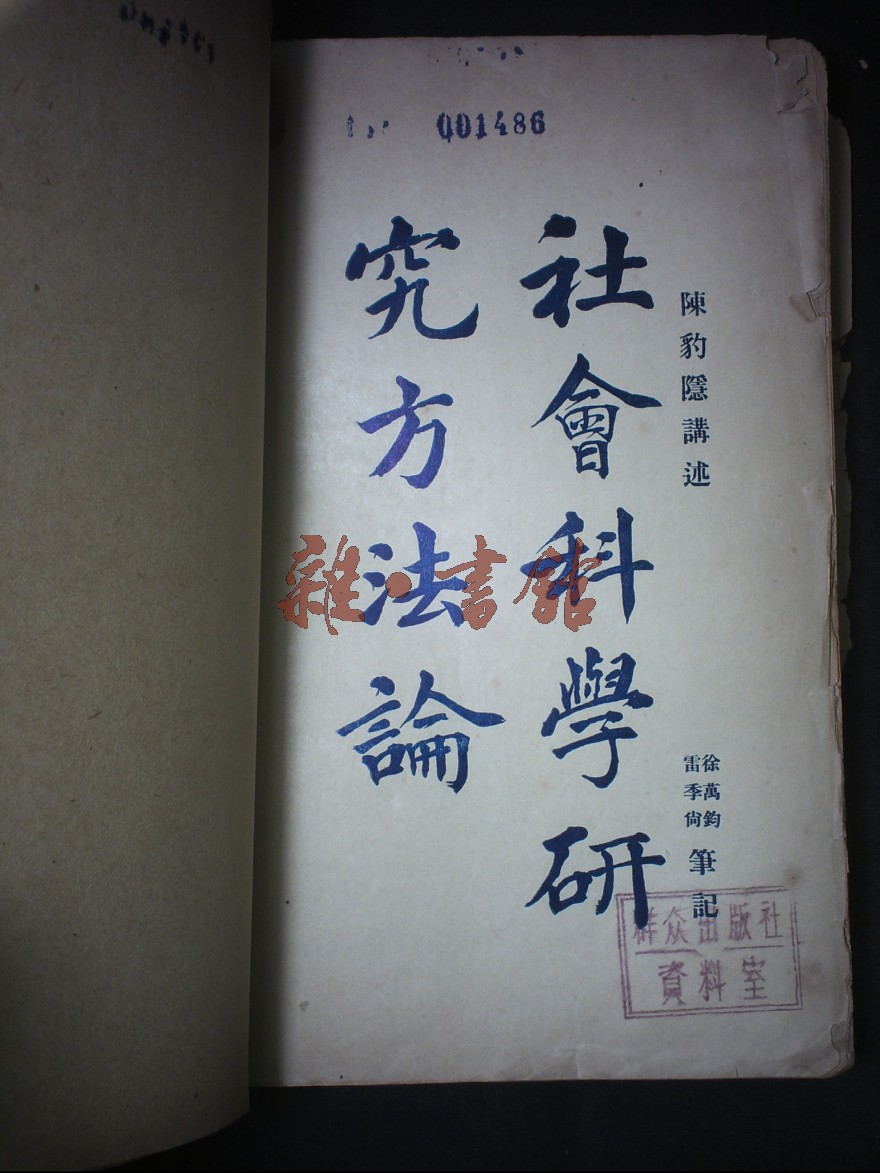 001486
陳豹隱講述
社會科學研
究方法論
徐萬鈞
雷季尙
筆記
雜·書館
群众出版社
資料室